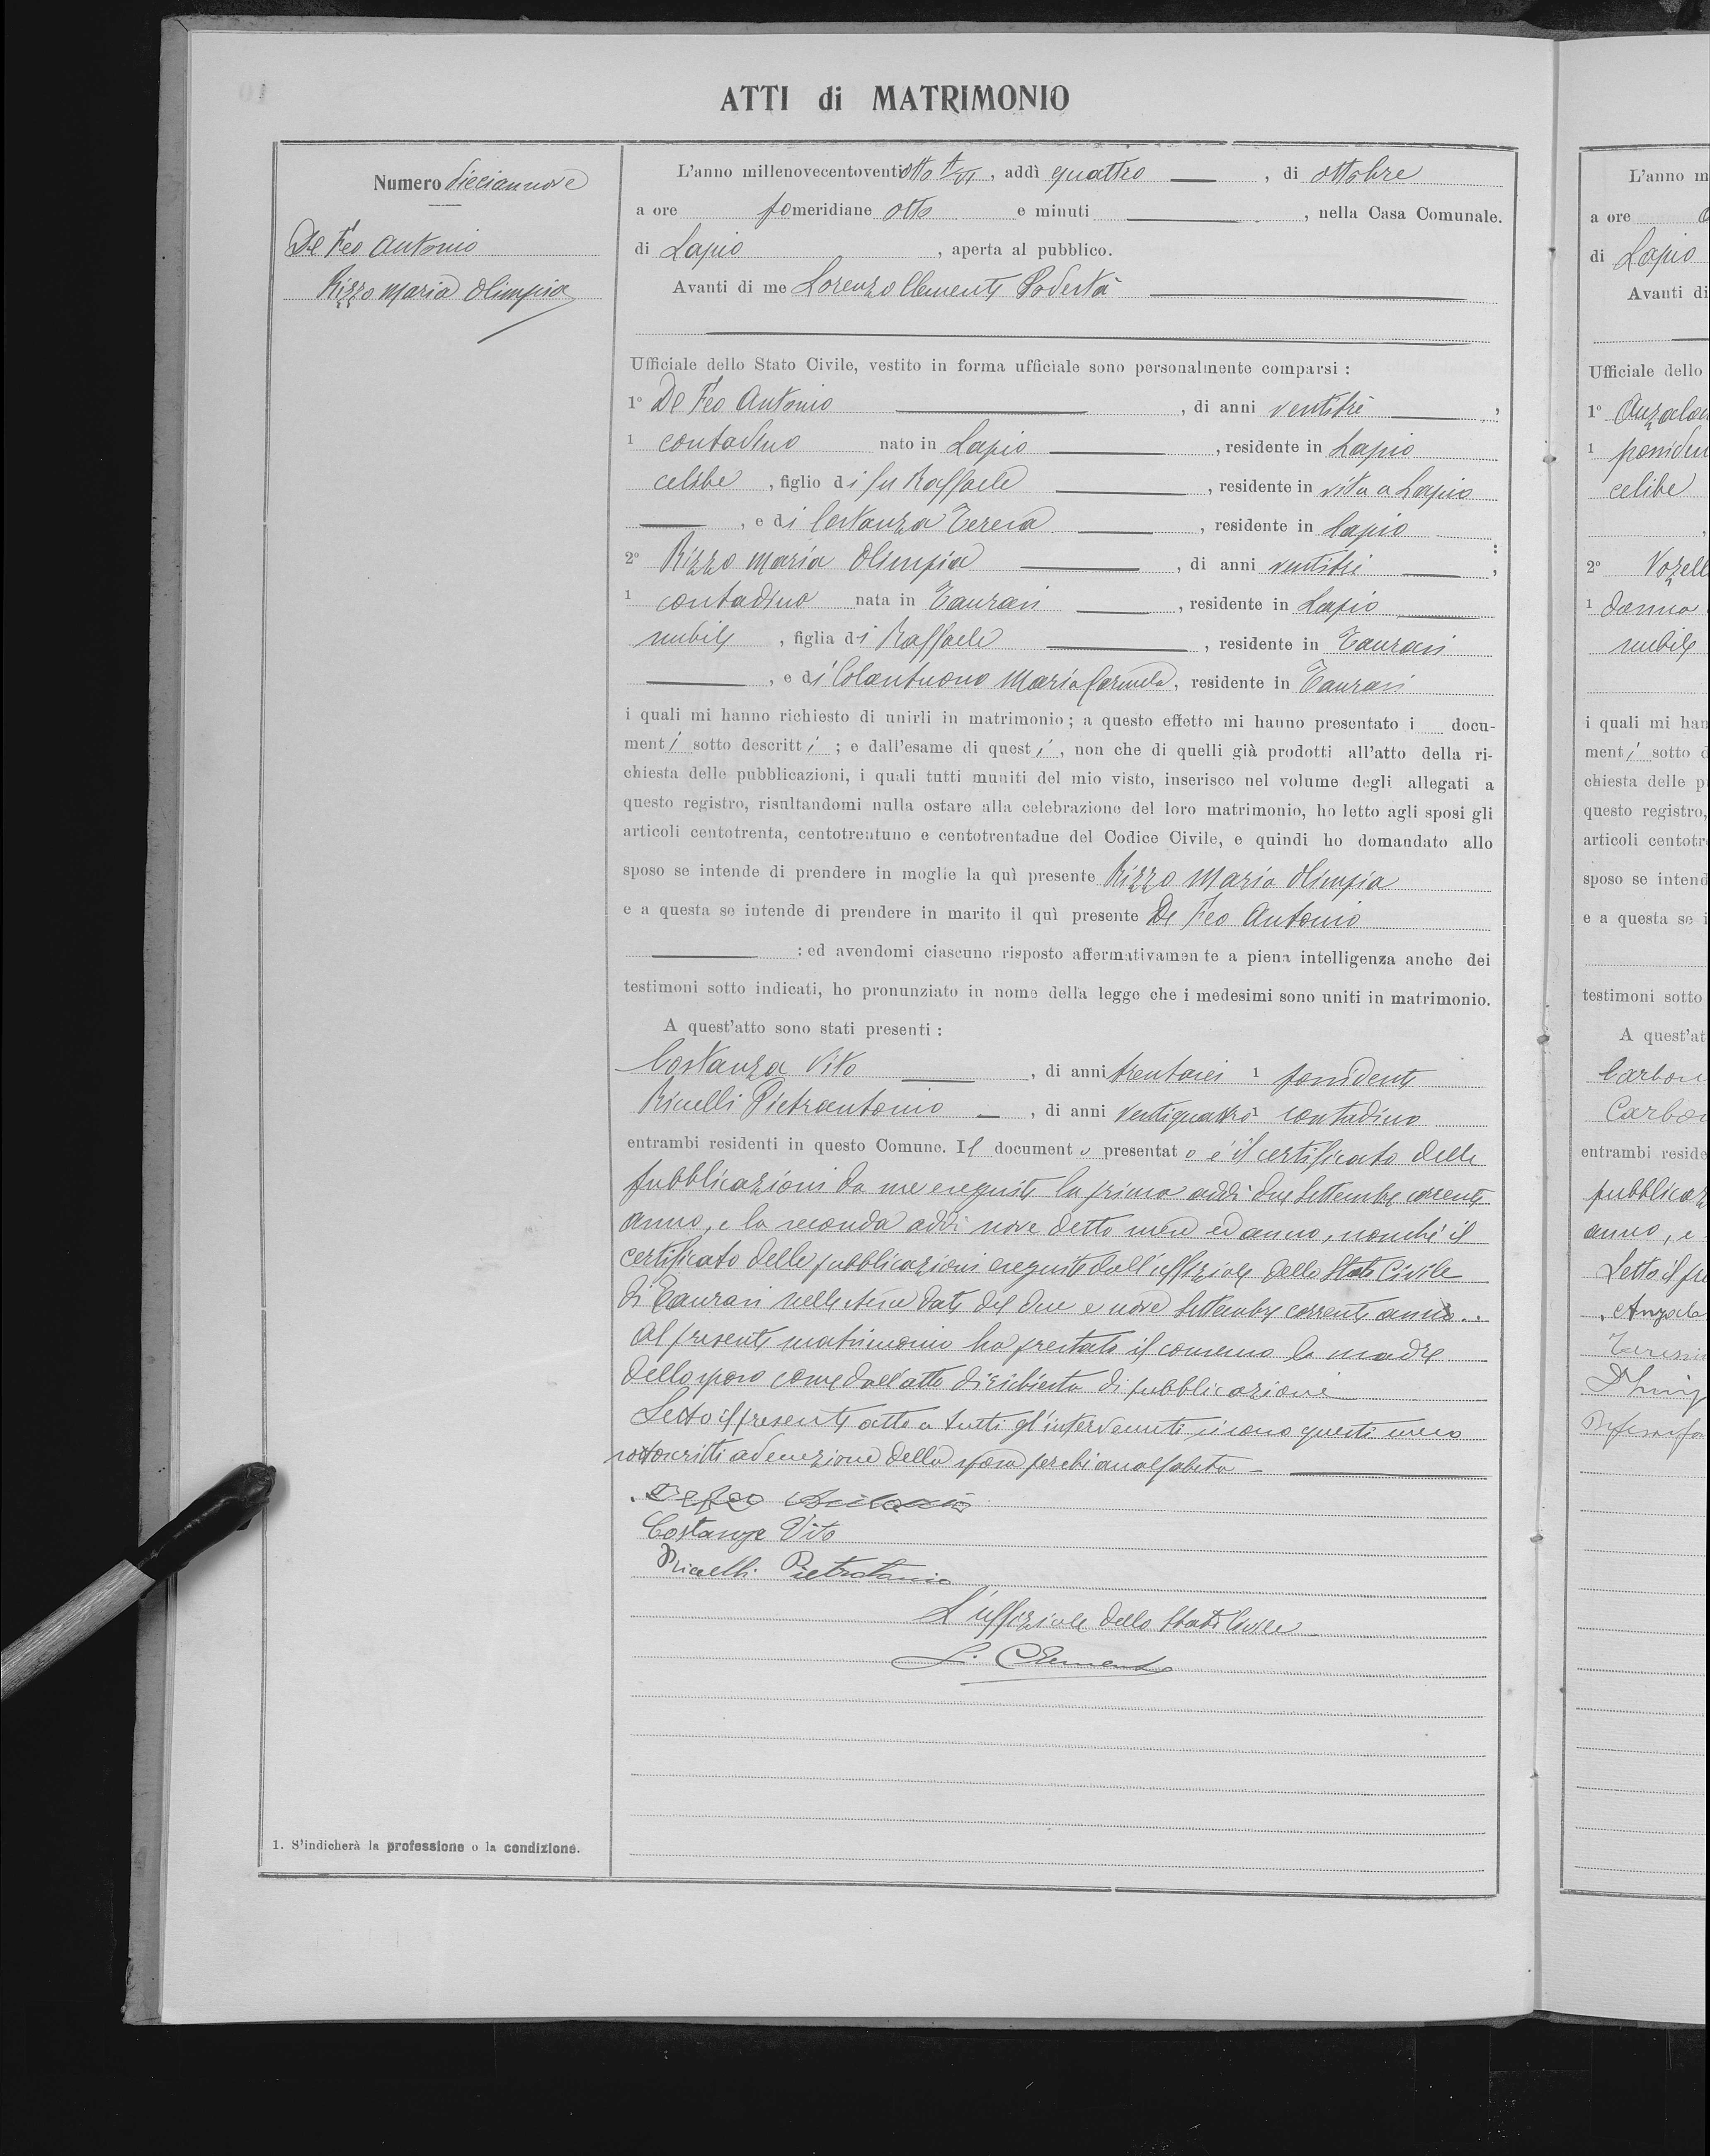 ATTI di MATRIMONIO
Numero diciannove
De Feo Antonio
Rizzo Maria Olimpia
L'anno millenovecentoventiotto A VI, addì quattro, di ottobre
a ore pomeridiane otto e minuti, nella Casa Comunale.
di Lapio, aperta al pubblico.
Avanti di me Lorenzo Clemente Podestà
Ufficiale dello Stato Civile, vestito in forma ufficiale sono personalmente comparsi :
1° De Feo Antonio, di anni ventitrè,
1 contadino nato in Lapio, residente in Lapio
celibe, figlio di fu Raffaele, residente in vita a Lapio
, e di Costanza Teresa, residente in Lapio :
2° Rizzo Maria Olimpia, di anni ventitrè,
1 contadina nata in Taurasi, residente in Lapio
nubile, figlia di Raffaele, residente in Taurasi
, e di Colantuono Maria Carmela, residente in Taurasi
i quali mi hanno richiesto di unirli in matrimonio ; a questo effetto mi hanno presentato i docu-
menti sotto descritti ; e dall'esame di questi, non che di quelli già prodotti all'atto della ri-
chiesta delle pubblicazioni, i quali tutti muniti del mio visto, inserisco nel volume degli allegati a
questo registro, risultandomi nulla ostare alla celebrazione del loro matrimonio, ho letto agli sposi gli
articoli centotrenta, centotrentuno e centotrentadue del Codice Civile, e quindi ho domandato allo
sposo se intende di prendere in moglie la quì presente Rizzo Maria Olimpia
e a questa se intende di prendere in marito il quì presente De Feo Antonio
: ed avendomi ciascuno risposto affermativamente a piena intelligenza anche dei
testimoni sotto indicati, ho pronunziato in nome della legge che i medesimi sono uniti in matrimonio.
A quest'atto sono stati presenti :
Costanza Vito, di anni trentasei 1 possidente
Ricelli Pietrantonio, di anni ventiquattro 1 contadino
entrambi residenti in questo Comune. Il documento presentato è il certificato delle
pubblicazioni da me eseguite la prima addì due Settembre corrente
anno, e la seconda addì nove detto mese ed anno, nonchè il
certificato delle pubblicazioni eseguite dall'uffiziale dello Stato Civile
di Taurasi nelle stesse date del due e nove Settembre corrente anno.
Al presente matrimonio ha prestato il consenso la madre
dello sposo come dall'atto di richiesta di pubblicazione
Letto il presente atto a tutti gl'intervenuti si sono questi meco
sottoscritti ad eccezione della sposa perchè analfabeta
De feo Antonio
Costanza Vito
Ricelli Pietrantonio
L'uffiziale dello Stato Civile
L. Clemente
1. S'indicherà la professione o la condizione.
L'anno m
a ore
di Lapio
Avanti di
Ufficiale dello
1°
1 possiden
celibe
2°
1 donna
nubile
i quali mi han
menti sotto d
chiesta delle p
questo registro,
articoli centotr
sposo se intend
e a questa se i
testimoni sotto
A quest'at
Carbon
Carbon
entrambi reside
pubblicaz
anno, e
Letto il pre